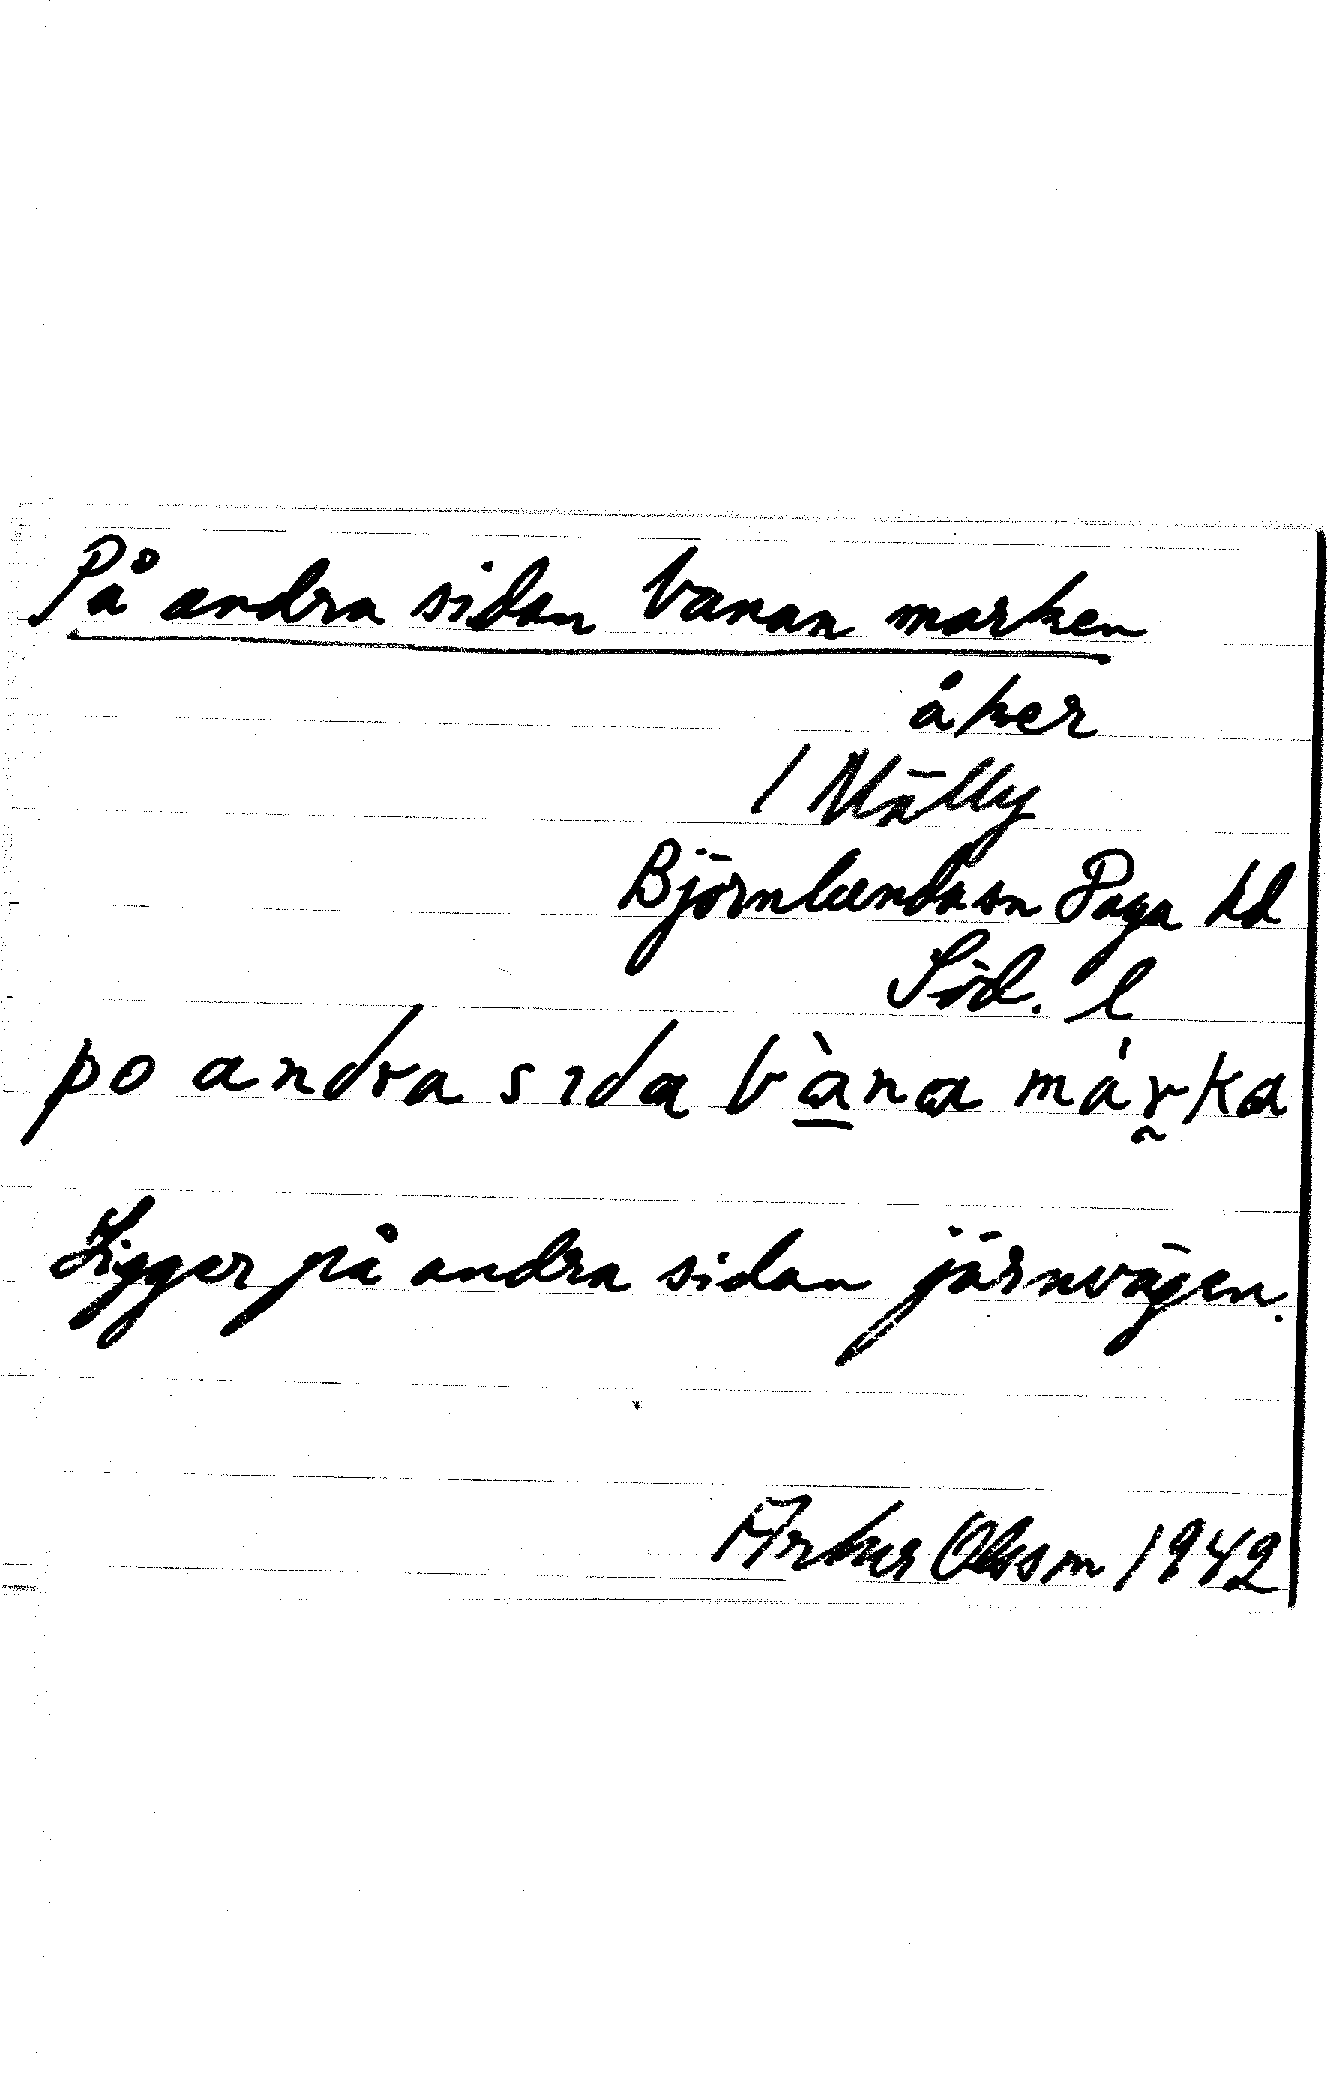 På andra sidan banan marken
åker
1 Mälby
Björnlunda sn Daga hd
Söd. l
po andra sida bàna márka
Ligger på andra sidan järnvägen.
Artur Olsson 1942